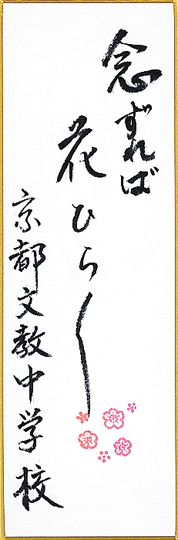 念ずれば
花ひらく
京都文教中学校